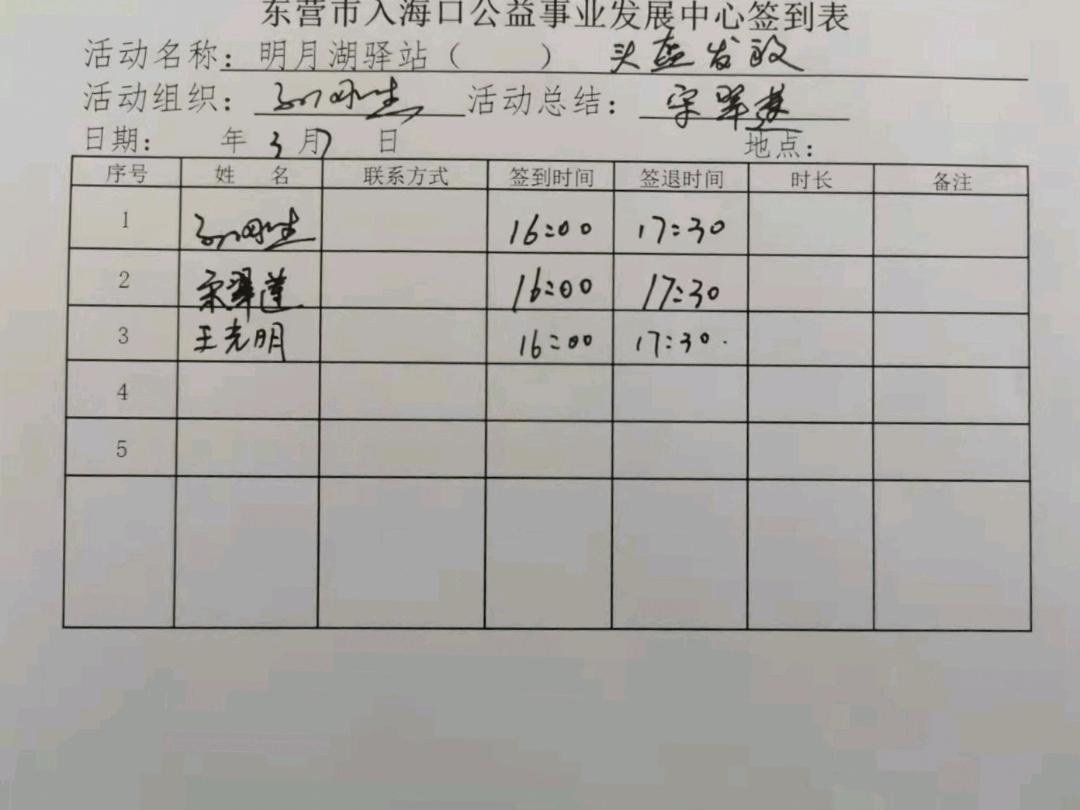 东营市入海口公益事业发展中心签到表
活动名称：明月湖驿站（ ） 头盔发放
活动组织： 活动总结：宋翠莲
日期： 年 3 月 7 日 地点：
序号 姓 名 联系方式 签到时间 签退时间 时长 备注
1 16:00 17:30
2 宋翠莲 16:00 17:30
3 王光明 16:00 17:30
4
5